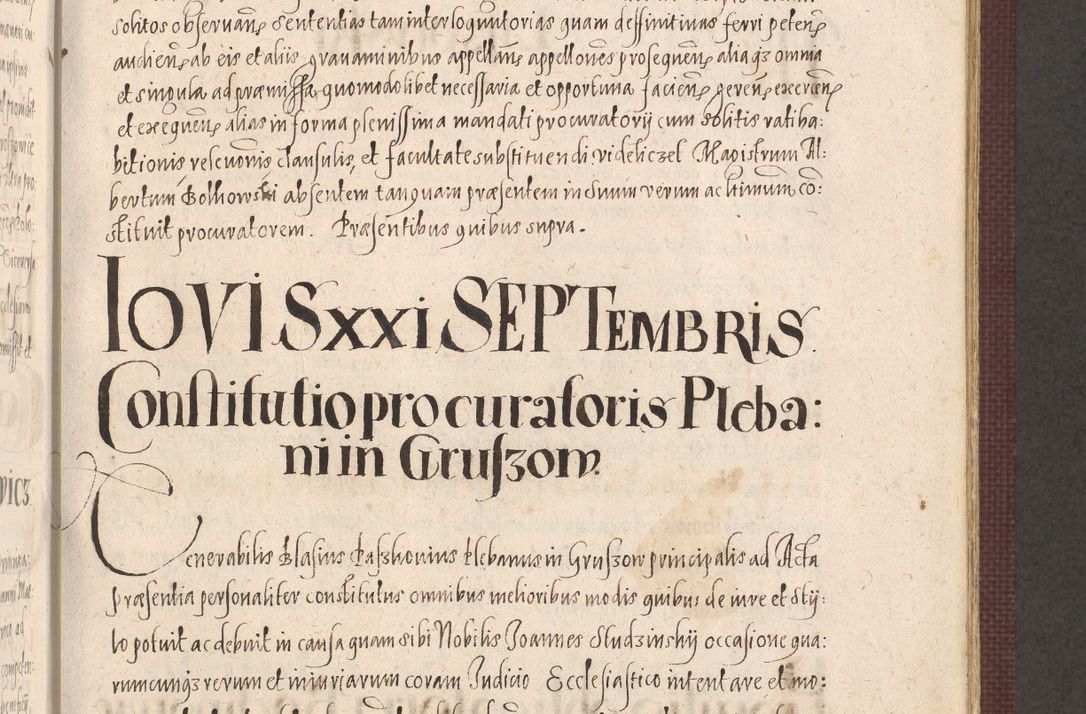 solitos observan. Sententias tam interloquutorias quam deffinitivas ferri peten.
audien. ab eis et aliis gravaminibus appellan. appellones prosequen. aliaqz omnia
et singula ad præmissa quomodolibet necessaria et opportuna facien. geren. exercen.
et exequen. alias in forma plenissima mandati procuratorij cum solitis ratiha:
bitionis relevonis clausulis, et facultate substituendi videliczet Magistrum Al:
bertum Bolhowski absentem tanquam præsentem in suum verum ac ltimum co:
stituit procuratorem. Præsentibus quibus supra.
IOVIS XXI SEPTEMBRIS
Constitutio procuratoris Pleba:
ni in Gruszow
Venerabilis Blasius Paszkovius Plebanus in Gruszow principalis ad Acta
præsentia personaliter constitutus omnibus melioribus modis quibus de iure et Sty:
lo potuit ac debuit in causa quam sibi Nobilis Joannes Studzinskij occasione qua:
rumcunqz rerum et iniuriarum coram Judicio Ecclesiastico intentare et mo: